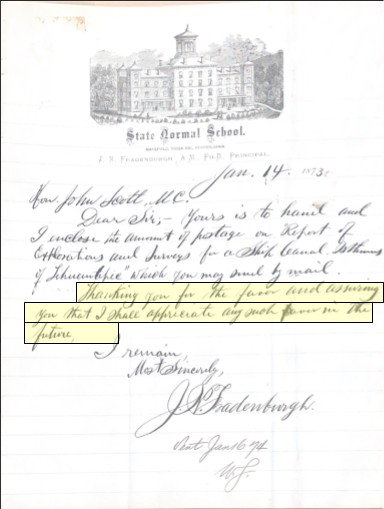 State Normal School.
J. N. FRADENBURGH, A.B., PH.D., PRINCIPAL.
Jan. 14, 1873.
Hon. John Scott, M.C.
Dear Sir,- Yours is to hand and
I enclose the amount of postage on Report of
Explorations and Surveys for a Ship Canal, Isthmus
of Tehuantepec" which you may send by mail.
Thanking you for the favor and assuring
you that I shall appreciate any such favor in the
future,
I remain,
Most Sincerely,
J. N. Fradenburgh.
Jan 16 74